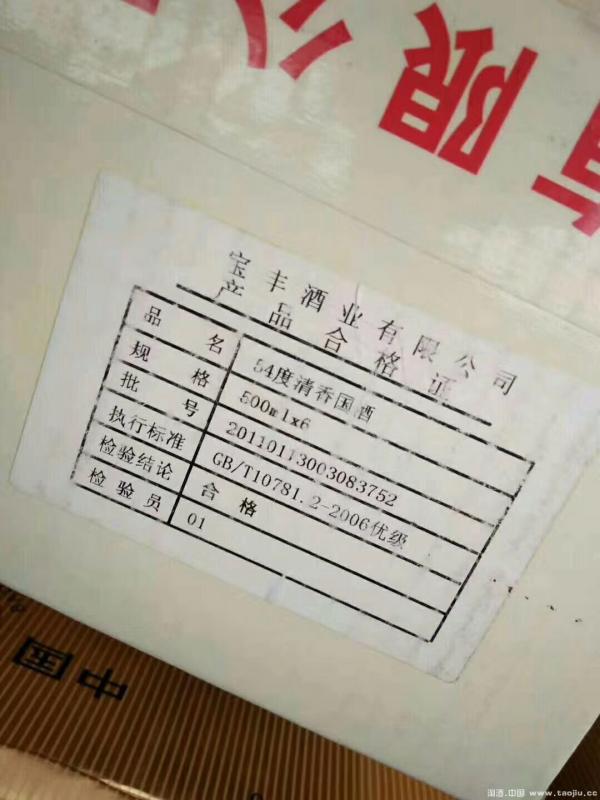 有限公
宝丰酒业有限公司
产品合格证
品名 54度清香国酒
规格 500mlx6
批号 20110113003083752
执行标准 GB/T10781.2-2006优级
检验结论 合格
检验员 01
中国
淘酒.中国 www.taojiu.cc